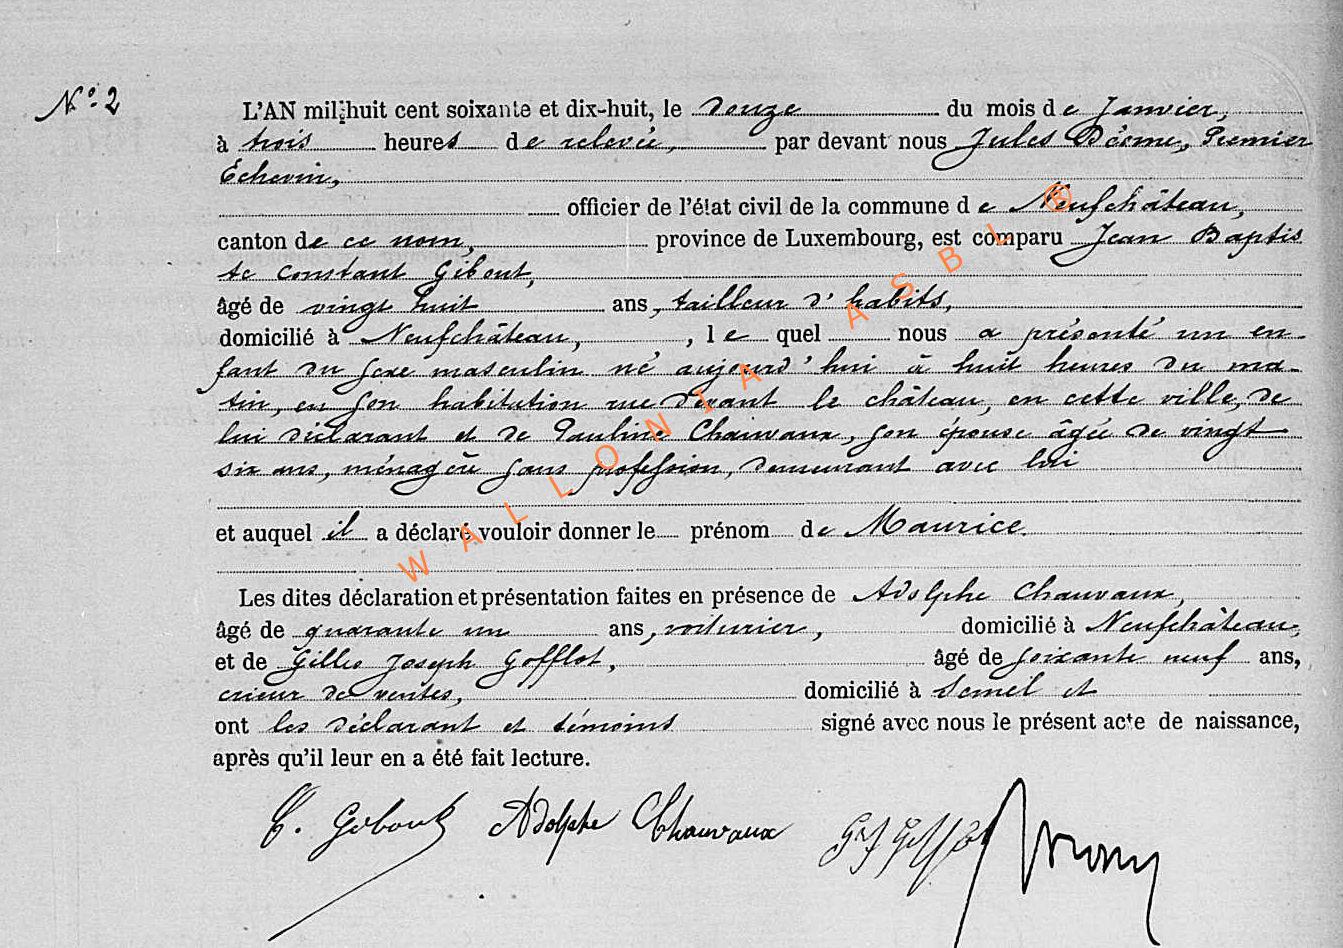 N° 2
L'AN mil huit cent soixante et dix-huit, le douze du mois de Janvier,
à trois heures de relevée, par devant nous Jules Désmu, Premier
Echevin,
officier de l'état civil de la commune de Neufchâteau,
canton de ce nom, province de Luxembourg, est comparu Jean Baptis
te Constant Gibout,
âgé de vingt huit ans, tailleur d'habits,
domicilié à Neufchâteau, , le quel nous a présenté un en-
fant du sexe masculin né aujourd'hui à huit heures du ma-
tin, en son habitation rue devant le château, en cette ville, de
lui déclarant et de Pauline Chauvaux, son épouse âgée de vingt
six ans, ménagère sans profession, demeurant avec lui
et auquel il a déclaré vouloir donner le prénom de Maurice.
Les dites déclaration et présentation faites en présence de Adolphe Chauvaux,
âgé de quarante un ans, voiturier, domicilié à Neufchâteau,
et de Gilles Joseph Gofflot, âgé de soixante neuf ans,
crieur de ventes, domicilié à Semel et
ont les déclarant et témoins signé avec nous le présent acte de naissance,
après qu'il leur en a été fait lecture.
C. Gobout Adolphe Chauvaux
WALLONIA ASBL ®